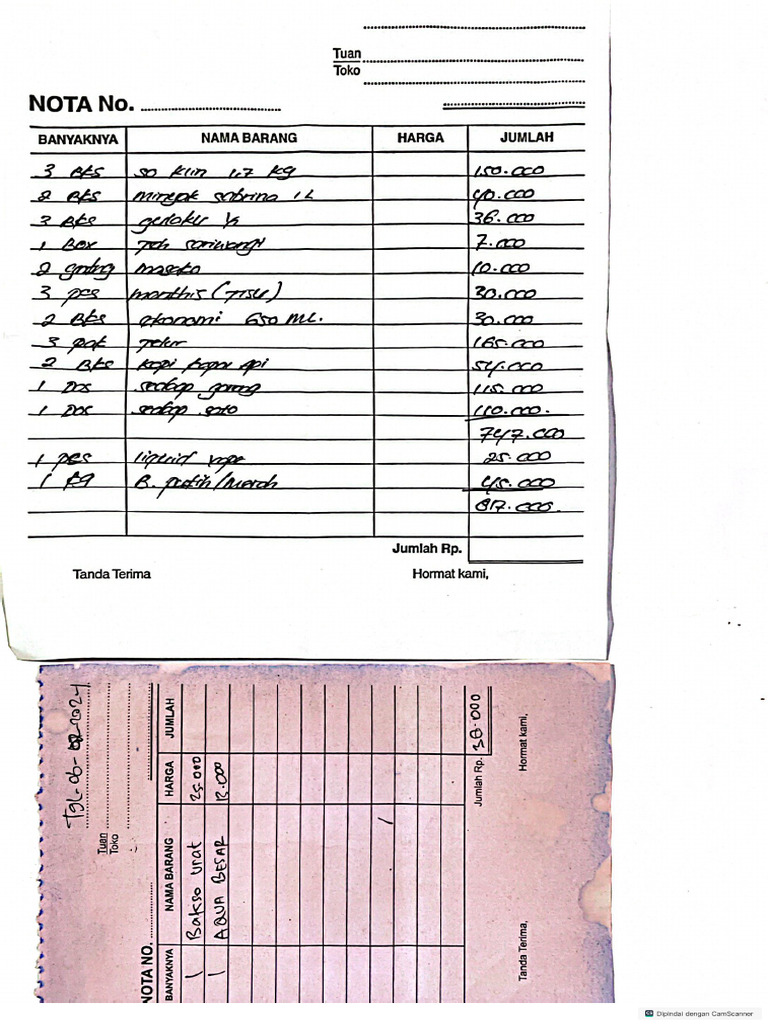 Tuan
Toko
NOTA No.
BANYAKNYA NAMA BARANG HARGA JUMLAH
3 Bks so klin 1,7 kg 150.000
2 Bks minyak sabrina 1 L 40.000
3 Bks gulaku ½ 36.000
1 Box Teh sariwangi 7.000
2 gndng masako 10.000
3 pcs monthis (TISU) 30.000
2 Bks ekonomi 650 ML. 30.000
3 pak Telur 165.000
2 Bks kopi kapal api 54.000
1 Dos sedap goreng 115.000
1 Dos sedap soto 110.000.
747.000
1 pcs liquid vape 25.000
1 kg B. putih/merah 45.000
817.000.
Jumlah Rp.
Tanda Terima Hormat kami,
Tgl-06-02-2024
Tuan
Toko
NOTA NO.
BANYAKNYA NAMA BARANG HARGA JUMLAH
1 Bakso Urat 25.000
1 AQUA BESAR 13.000
Jumlah Rp. 38.000
Tanda Terima, Hormat kami,
CS Dipindai dengan CamScanner